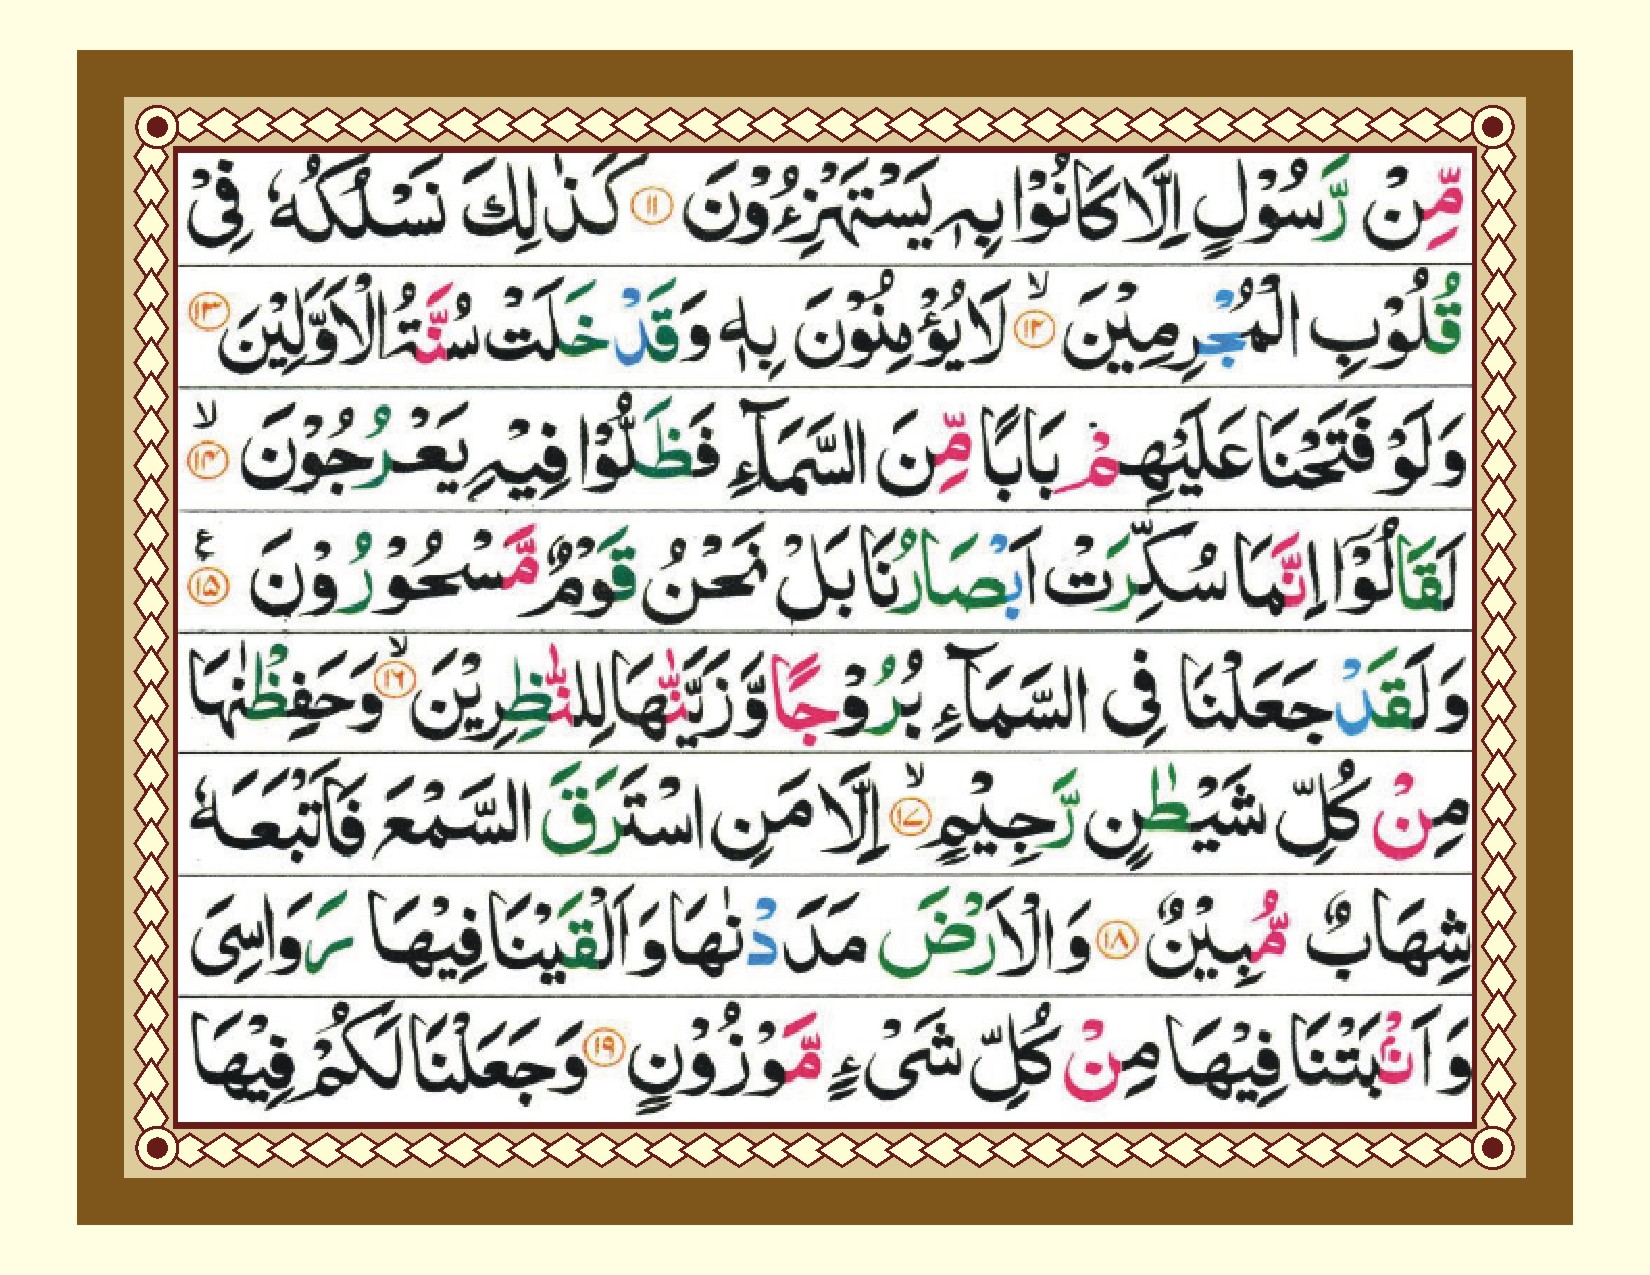 مِّنْ رَّسُوْلٍ اِلَّا كَانُوْا بِهٖ يَسْتَهْزِءُوْنَ ﴿۱۱﴾ كَذٰلِكَ نَسْلُكُهٗ فِىْ
قُلُوْبِ الْمُجْرِمِيْنَ ۙ﴿۱۲﴾ لَا يُؤْمِنُوْنَ بِهٖ وَقَدْ خَلَتْ سُنَّةُ الْاَوَّلِيْنَ ﴿۱۳﴾
وَلَوْ فَتَحْنَا عَلَيْهِمْ بَابًا مِّنَ السَّمَآءِ فَظَلُّوْا فِيْهِ يَعْرُجُوْنَ ۙ﴿۱۴﴾
لَقَالُوْۤا اِنَّمَا سُكِّرَتْ اَبْصَارُنَا بَلْ نَحْنُ قَوْمٌ مَّسْحُوْرُوْنَ ع ﴿۱۵﴾
وَلَقَدْ جَعَلْنَا فِى السَّمَآءِ بُرُوْجًا وَّزَيَّنّٰهَا لِلنّٰظِرِيْنَ ۙ﴿۱۶﴾ وَحَفِظْنٰهَا
مِنْ كُلِّ شَيْطٰنٍ رَّجِيْمٍ ۙ﴿۱۷﴾ اِلَّا مَنِ اسْتَرَقَ السَّمْعَ فَاَتْبَعَهٗ
شِهَابٌ مُّبِيْنٌ ﴿۱۸﴾ وَالْاَرْضَ مَدَدْنٰهَا وَاَلْقَيْنَا فِيْهَا رَوَاسِىَ
وَاَنْۢبَتْنَا فِيْهَا مِنْ كُلِّ شَىْءٍ مَّوْزُوْنٍ ﴿۱۹﴾ وَجَعَلْنَا لَكُمْ فِيْهَا